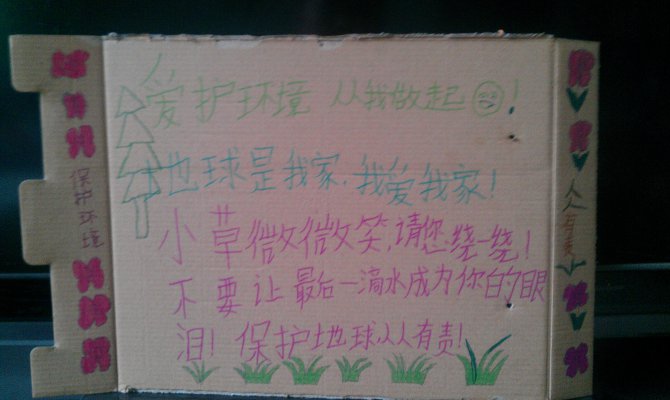 爱护环境 从我做起!
地球是我家,我爱我家!
小草微微笑,请您绕一绕!
不要让最后一滴水成为你的眼
泪!保护地球人人有责!
保护环境
人人有责